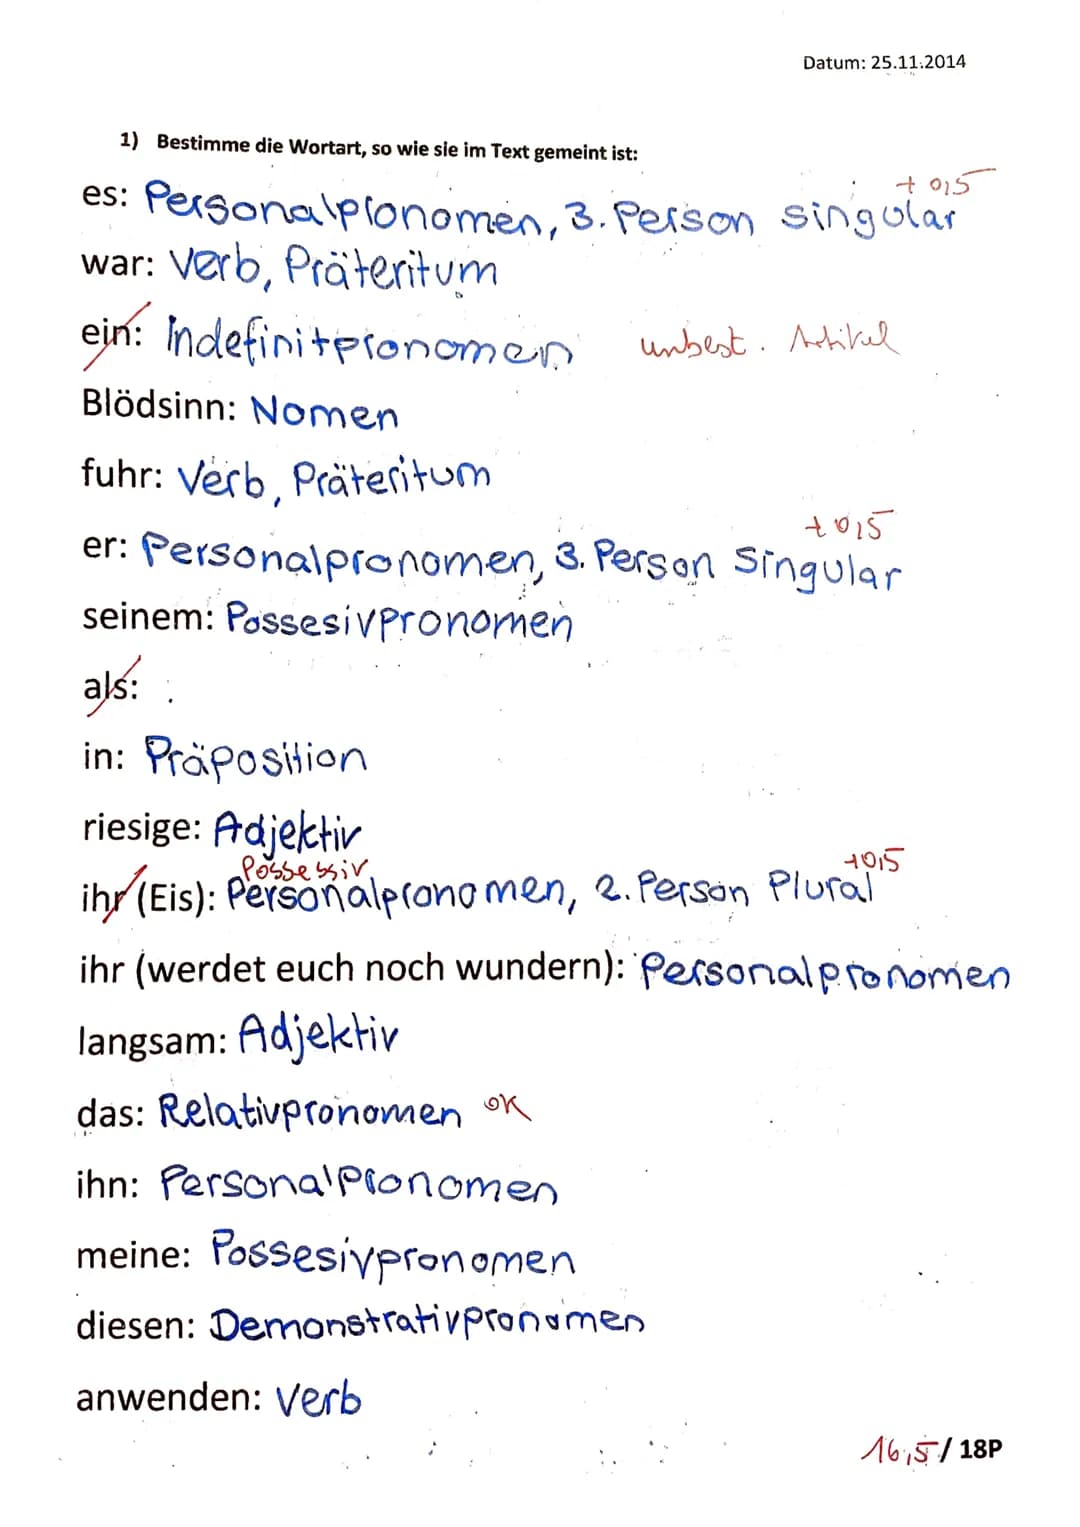 Datum: 25.11.2014
1) Bestimme die Wortart, so wie sie im Text gemeint ist:
+ 0,5
es: Personalpronomen, 3. Person singular
war: Verb, Präteritum
ein: Indefinitpronomen unbest. Artikel
Blödsinn: Nomen
fuhr: Verb, Präteritum
+ 0,5
er: Personalpronomen, 3. Person Singular
seinem: Possesivpronomen
als:
in: Präposition
riesige: Adjektiv
Possessiv +0,5
ihr (Eis): Personalpronomen, 2. Person Plural
ihr (werdet euch noch wundern): Personalpronomen
langsam: Adjektiv
das: Relativpronomen OK
ihn: Personalpronomen
meine: Possesivpronomen
diesen: Demonstrativpronomen
anwenden: Verb
16,5 / 18P